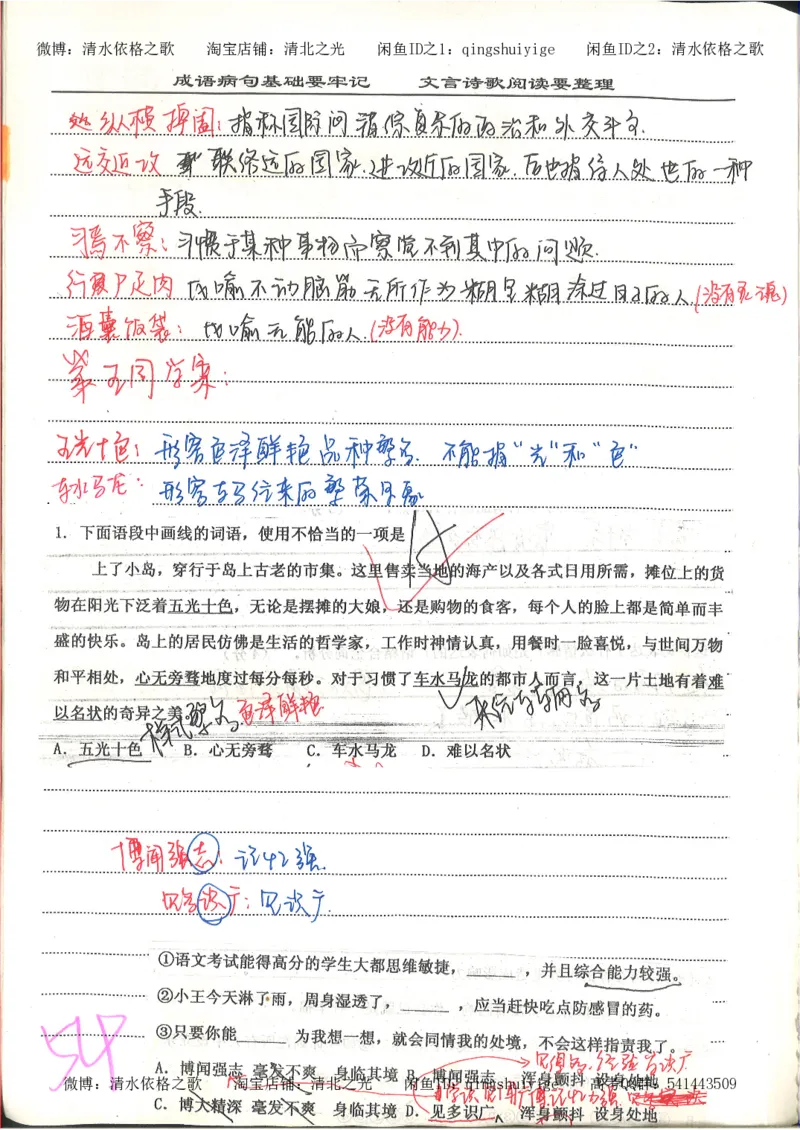 微博：清水依格之歌　淘宝店铺：清北之光　闲鱼ID之1：qingshuiyige　闲鱼ID之2：清水依格之歌
成语病句基础要牢记　文言诗歌阅读要整理
纵横捭阖：指在国际间
远交近攻 联络远的国家.进攻近的国家.后也指待人处世的一种
手段.
习焉不察：习惯于某种事物而察觉不到其中的问题.
行尸走肉 比喻不动脑筋无所作为糊里糊涂过日子的人.(没有灵魂)
酒囊饭袋：比喻无能的人.(没有能力).
第五周学案：
五光十色：形容色泽鲜艳品种繁多. 不能指"光"和"色"
车水马龙：形容车马往来的繁荣景象
1．下面语段中画线的词语，使用不恰当的一项是
上了小岛，穿行于岛上古老的市集。这里售卖当地的海产以及各式日用所需，摊位上的货
物在阳光下泛着五光十色，无论是摆摊的大娘，还是购物的食客，每个人的脸上都是简单而丰
盛的快乐。岛上的居民仿佛是生活的哲学家，工作时神情认真，用餐时一脸喜悦，与世间万物
和平相处，心无旁骛地度过每分每秒。对于习惯了车水马龙的都市人而言，这一片土地有着难
以名状的奇异之美。
色泽鲜艳
A．五光十色　B．心无旁骛　C．车水马龙　D．难以名状
博闻强志：记忆强.
见多识广：见识广.
①语文考试能得高分的学生大都思维敏捷，______，并且综合能力较强。
②小王今天淋了雨，周身湿透了，______，应当赶快吃点防感冒的药。
③只要你能______为我想一想，就会同情我的处境，不会这样指责我了。
A．博闻强志 毫发不爽 身临其境 B．博闻强志 浑身颤抖 设身处地
微博：清水依格之歌　淘宝店铺：清北之光　闲鱼ID之1：qingshuiyige　高考QQ群：541443509
C．博大精深 毫发不爽 身临其境 D．见多识广 浑身颤抖 设身处地